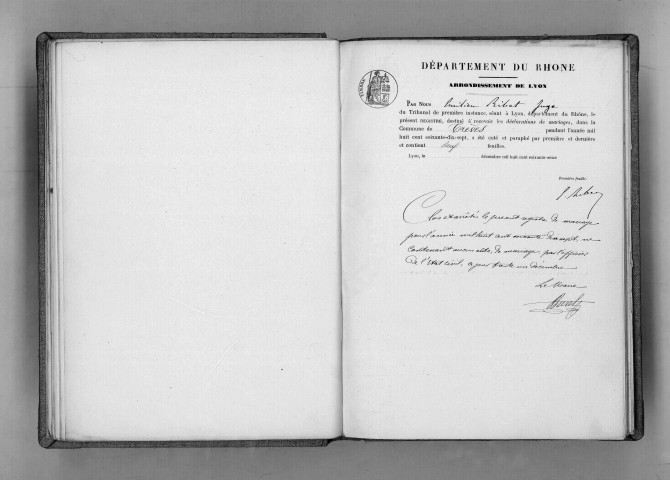 DÉPARTEMENT DU RHONE
ARRONDISSEMENT DE LYON
PAR NOUS Emilien Ribat Juge
du Tribunal de première instance, séant à Lyon, département du Rhône, le
présent REGISTRE, destiné à recevoir les déclarations de mariages, dans la
Commune de Trèves pendant l'année mil
huit cent soixante-dix-sept, a été coté et paraphé par première et dernière
et contient feuilles.
Lyon, le décembre mil huit cent soixante-seize
Première feuille.
Clos et arrêté le présent registre de mariage
pour l'année mil huit cent soixante dix sept, ne
contenant aucun acte de mariage par l'officier
de l'état civil, a jour trente un décembre
Le Maire